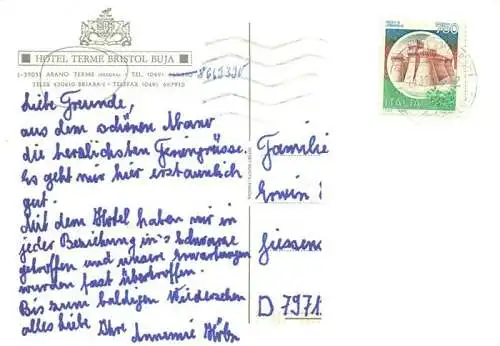 HOTEL TERME BRISTOL BUJA
I-35031 ABANO TERME (PADOVA) • TEL. (049) 8669390
TELEX 430210 BRIABA-I • TELEFAX (049) 667910
Liebe Freunde,
aus dem schönen Abano
die herzlichsten Feriengrüsse.
Es geht mir hier erstaunlich
gut.
Mit dem Hotel haben wir in
jeder Beziehung in's Schwarze
getroffen und unsere Erwartungen
wurden fast übertroffen.
Bis zum baldigen Wiedersehen
alles Liebe Ihre Annemie
Familie
Erwin
Giessen
D 7971
750
ITALIA